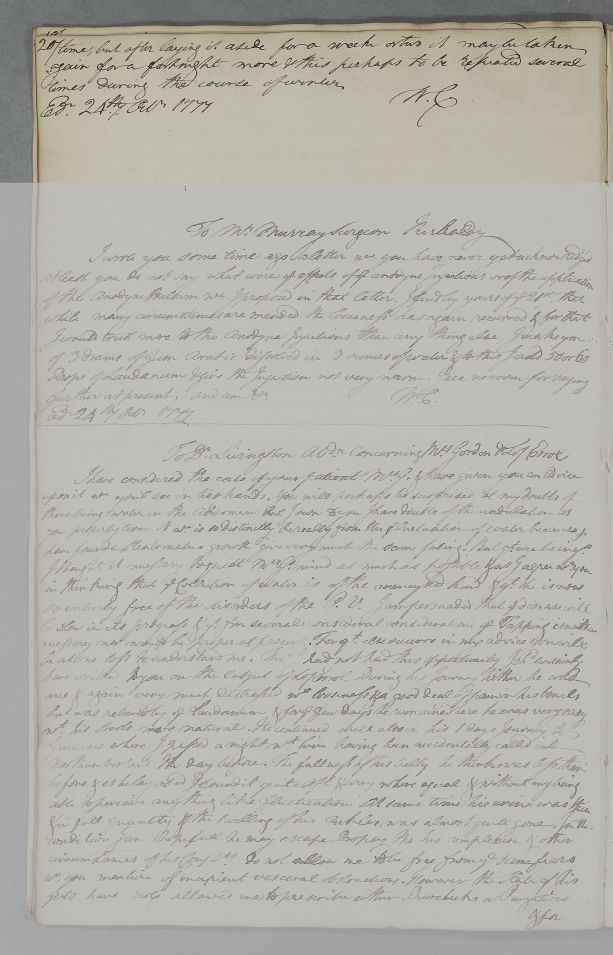 time, but after laying it aside for a week or two it may be taken
again for a fortnight more & this perhaps to be repeated several
times during the course of winter
Edr. 24th. Octr. 1777 W.C.
To Mr. Murray Surgeon Kirkaldy
I wrote you some time ago a letter wc you have never yet acknowledged
at least you do not say what were ye effects of ye anodyne injections or of the application
of the Anodyne Balsam wc I proposed in that letter. I find by yours of ye 21st. that
while many circumstances are mended the looseness has again recurred & for that
I would trust more to the Anodyne Injections than any thing else
of 3 drams of Gum Arabic dissolved in 3 ounces of water & to this I add 50 or 60
Drops of Laudanum & give the Injection not very warm. I see no room for saying
further at present, and am &c W.C.
Edr 24th Octr 1777
To Dr. Livingston Abdn Concerning Mrs Gordon & Ld of Errol
I have considered the case of your patient Mrs G. & have given you an advice
upon it wc you'll see in her hands. You will perhaps be surprised at my doubts of
there being water in the abdomen but I own to you I have doubts of the undulation as
you properly term it wc. is so distinctly the really from the fluctuation of water because I
have found a Steatomatous growth give very much the same feeling. But yt are being
I thought it necessary to quiet Mrs G's mind as much as possible & as I agree wt you
in thinking that ye Collection of water is of the encysted kind & yt. she is now
so entirely free of the disorders of the P. V. I am persuaded that ye disease will
be slow in its progress & yt. from several considerations Tapping is neither
necessary nor would be proper at present. For yt. endeavours in my advice you will
be at no loss to understand me. Tho' I had not had this opportunity I shd certainly
have written to you on the subject of Ld of Errol during his Journey hither he was
once & again very much distressed wt looseness & a good deal of pain in his bowels
but was relieved by Laudanum & for ye few days he remained here he was very easy
wt. his stools more natural. He continued well also in his 1 days Journey to
Greenlaw where I passed a night wt him having been accidentally called into
Northumberland the day before. The fullness of his belly he then
before & as he lay abed I found it quite soft & every where equal & without my being
able to perceive any thing like fluctuation. At same time his urine was then
& in full quantity & the swelling of his ankles was almost quite gone. In this
condition I am hopefull he may escape Dropsy tho his complexion & other
circumstances of his Complts. do not allow me to be free from ye same fears
wc you mention of incipient visceral obstructions. However the State of his
guts have not allowed me to prescribe either Diuretics or Purgatives
& for